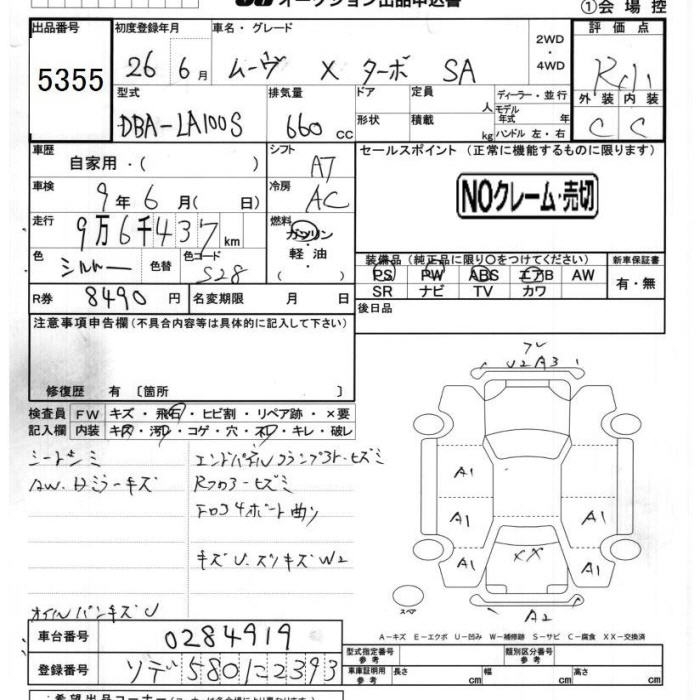 オークション出品申込書
①会場控
出品番号
5355
初度登録年月
26年 6月
車名・グレード
ムーヴ X ターボ SA
2WD
・
4WD
評価点
外装 内装
C C
型式
DBA-LA100S
排気量
660 cc
ドア
形状
定員 人
積載 kg
ディーラー・並行
モデル年式 年
ハンドル 左・右
車歴
自家用・( )
シフト
AT
セールスポイント (正常に機能するものに限ります)
NOクレーム・売切
車検
9年 6月( 日)
冷房
AC
走行
9万6千437km
燃料
ガソリン
・
軽油
( )
色
シルバー
色替
色コード
S28
装備品 (純正品に限り○をつけてください)
PS PW ABS エアB AW
SR ナビ TV カワ
新車保証書
有・無
R券 8490円
名変期限 月 日
後日品
注意事項申告欄(不具合内容等は具体的に記入して下さい)
修復歴 有 〔箇所 〕
検査員記入欄
FW キズ・飛石・ヒビ割・リペア跡・×要
内装 キズ・汚れ・コゲ・穴・ネジ・キレ・破レ
シートシミ
AW.Dミラーキズ
エンドパネルクランプ3ト.ヒズミ
Rフロアーヒズミ
フロアサポート曲り
キズU.スリキズW2
オイルパンキズU
フレ
U2 A3
A1
A1 A1
XX
A1 A1
A2
スペア
A−キズ E−エクボ U−凹み W−補修跡 S−サビ C−腐食 XX−交換済
車台番号
0284919
登録番号
ソデ580に2393
型式指定番号
参考
類別区分番号
参考
車庫証明用
参考
長さ cm
幅 cm
高さ cm
希望出品コーナー